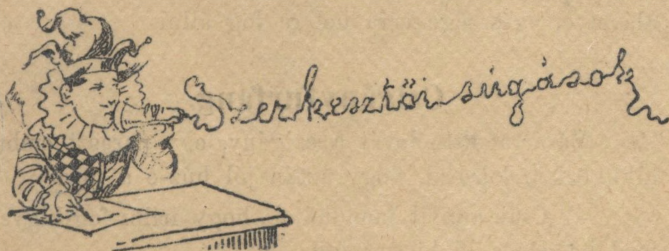 Szerkesztői súgások